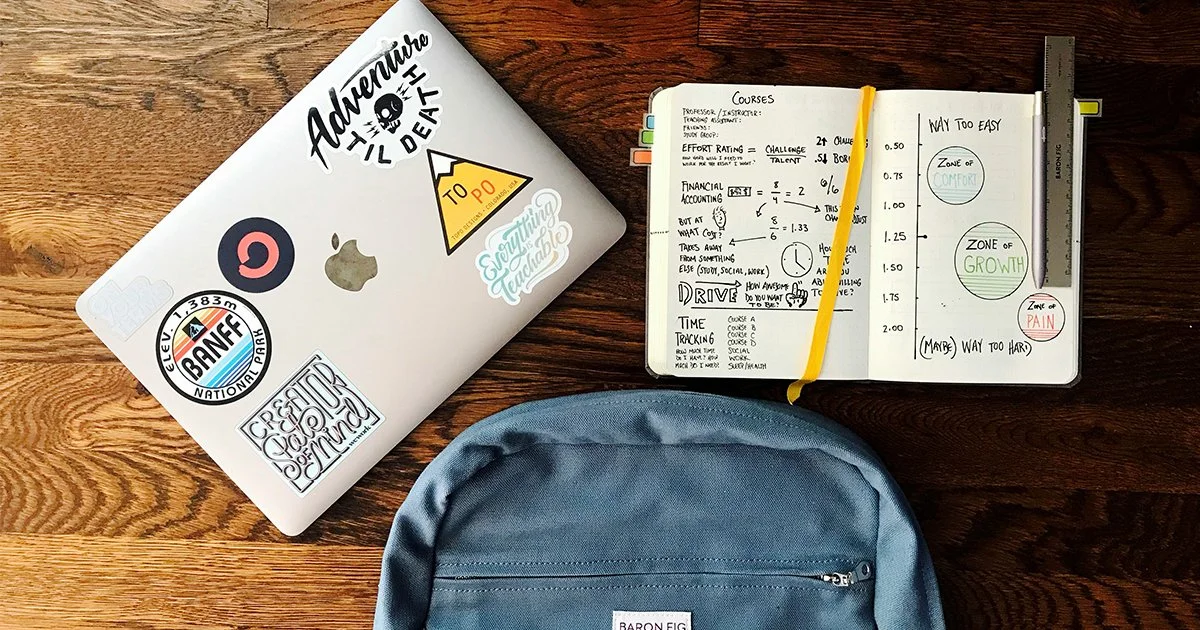 Adventure
TIL DEATH
TO PO
TOPO DESIGNS · COLORADO, USA
Everything
is
Teachable
ELEV. 1,383m
BANFF
NATIONAL PARK
CREATOR
State
OF
Mind
wework
COURSES
PROFESSOR / INSTRUCTOR:
TEACHING ASSISTANT:
FRIENDS:
STUDY GROUP:
EFFORT RATING = CHALLENGE
TALENT
HOW HARD WILL I NEED TO
WORK FOR THE RESULT I WANT?
2↑
.5↓
6/6
FINANCIAL
ACCOUNTING
= 8/4 = 2
THIS
BUT AT
WHAT COST?
8/6 = 1.33
TAKES AWAY
FROM SOMETHING
ELSE (STUDY, SOCIAL, WORK)
HOW MUCH
ARE YOU
DRIVE
HOW AWESOME
DO YOU WANT
TO BE?
TIME
TRACKING
HOW MUCH TIME
DO I HAVE? HOW
MUCH DO I NEED?
COURSE A
COURSE B
COURSE C
COURSE D
SOCIAL
WORK
SLEEP/HEALTH
WAY TOO EASY
0.50
0.75
1.00
1.25
1.50
1.75
2.00
ZONE OF
COMFORT
ZONE OF
GROWTH
ZONE OF
PAIN
(MAYBE) WAY TOO HARD
BARON FIG
BARON FIG